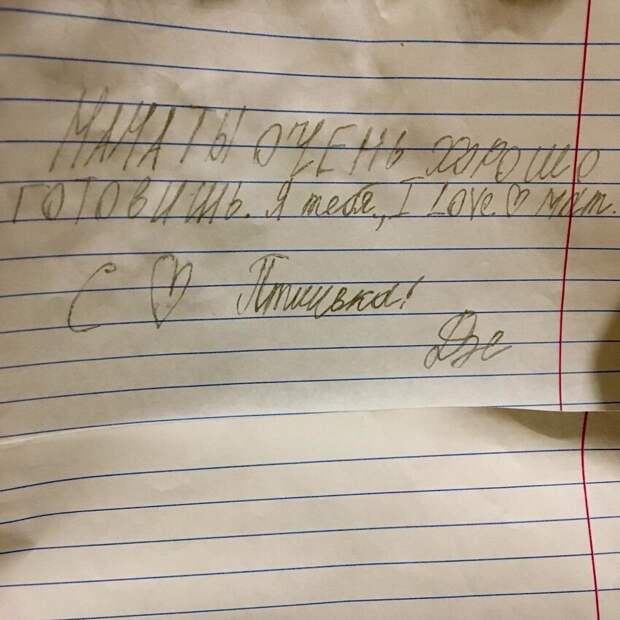 МАМА ТЫ ОЧЕНЬ ХОРОШО
ГОТОВИШЬ. Я тебя, I Love ♡ мам.
С ♡ Птицька!